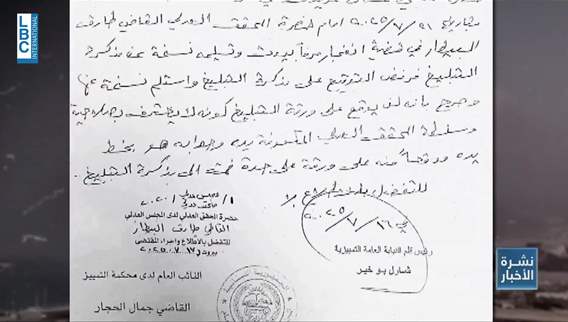 LBC
INTERNATIONAL
بتاريخ ٢٠٢٥/٧/٢١ امام حضرة المحقق العدلي القاضي طارق
البيطار في قضية انفجار مرفأ بيروت وتسليمه نسخة عن مذكرة
التبليغ فرفض التوقيع على مذكرة التبليغ واستلم نسخة عنها
وصرح بانه لن يوقع على ورقة التبليغ كونه لا يعترف بصلاحية
وسلطة المحقق العدلي وجوابه هو بخط
يده منه على ورقة على حدة ضمت الى مذكرة التبليغ.
للتفضل بالاطلاع
في ٢٠٢٥/٧/١٦
رئيس قلم النيابة العامة التمييزية
شارل بو خير
حضرة المحقق العدلي لدى المجلس العدلي
القاضي طارق البيطار
للتفضل بالاطلاع واجراء المقتضى
بيروت في ٢٠٢٥/٠٧/١٧
النائب العام لدى محكمة التمييز
القاضي جمال الحجار
نشرة
الأخبار